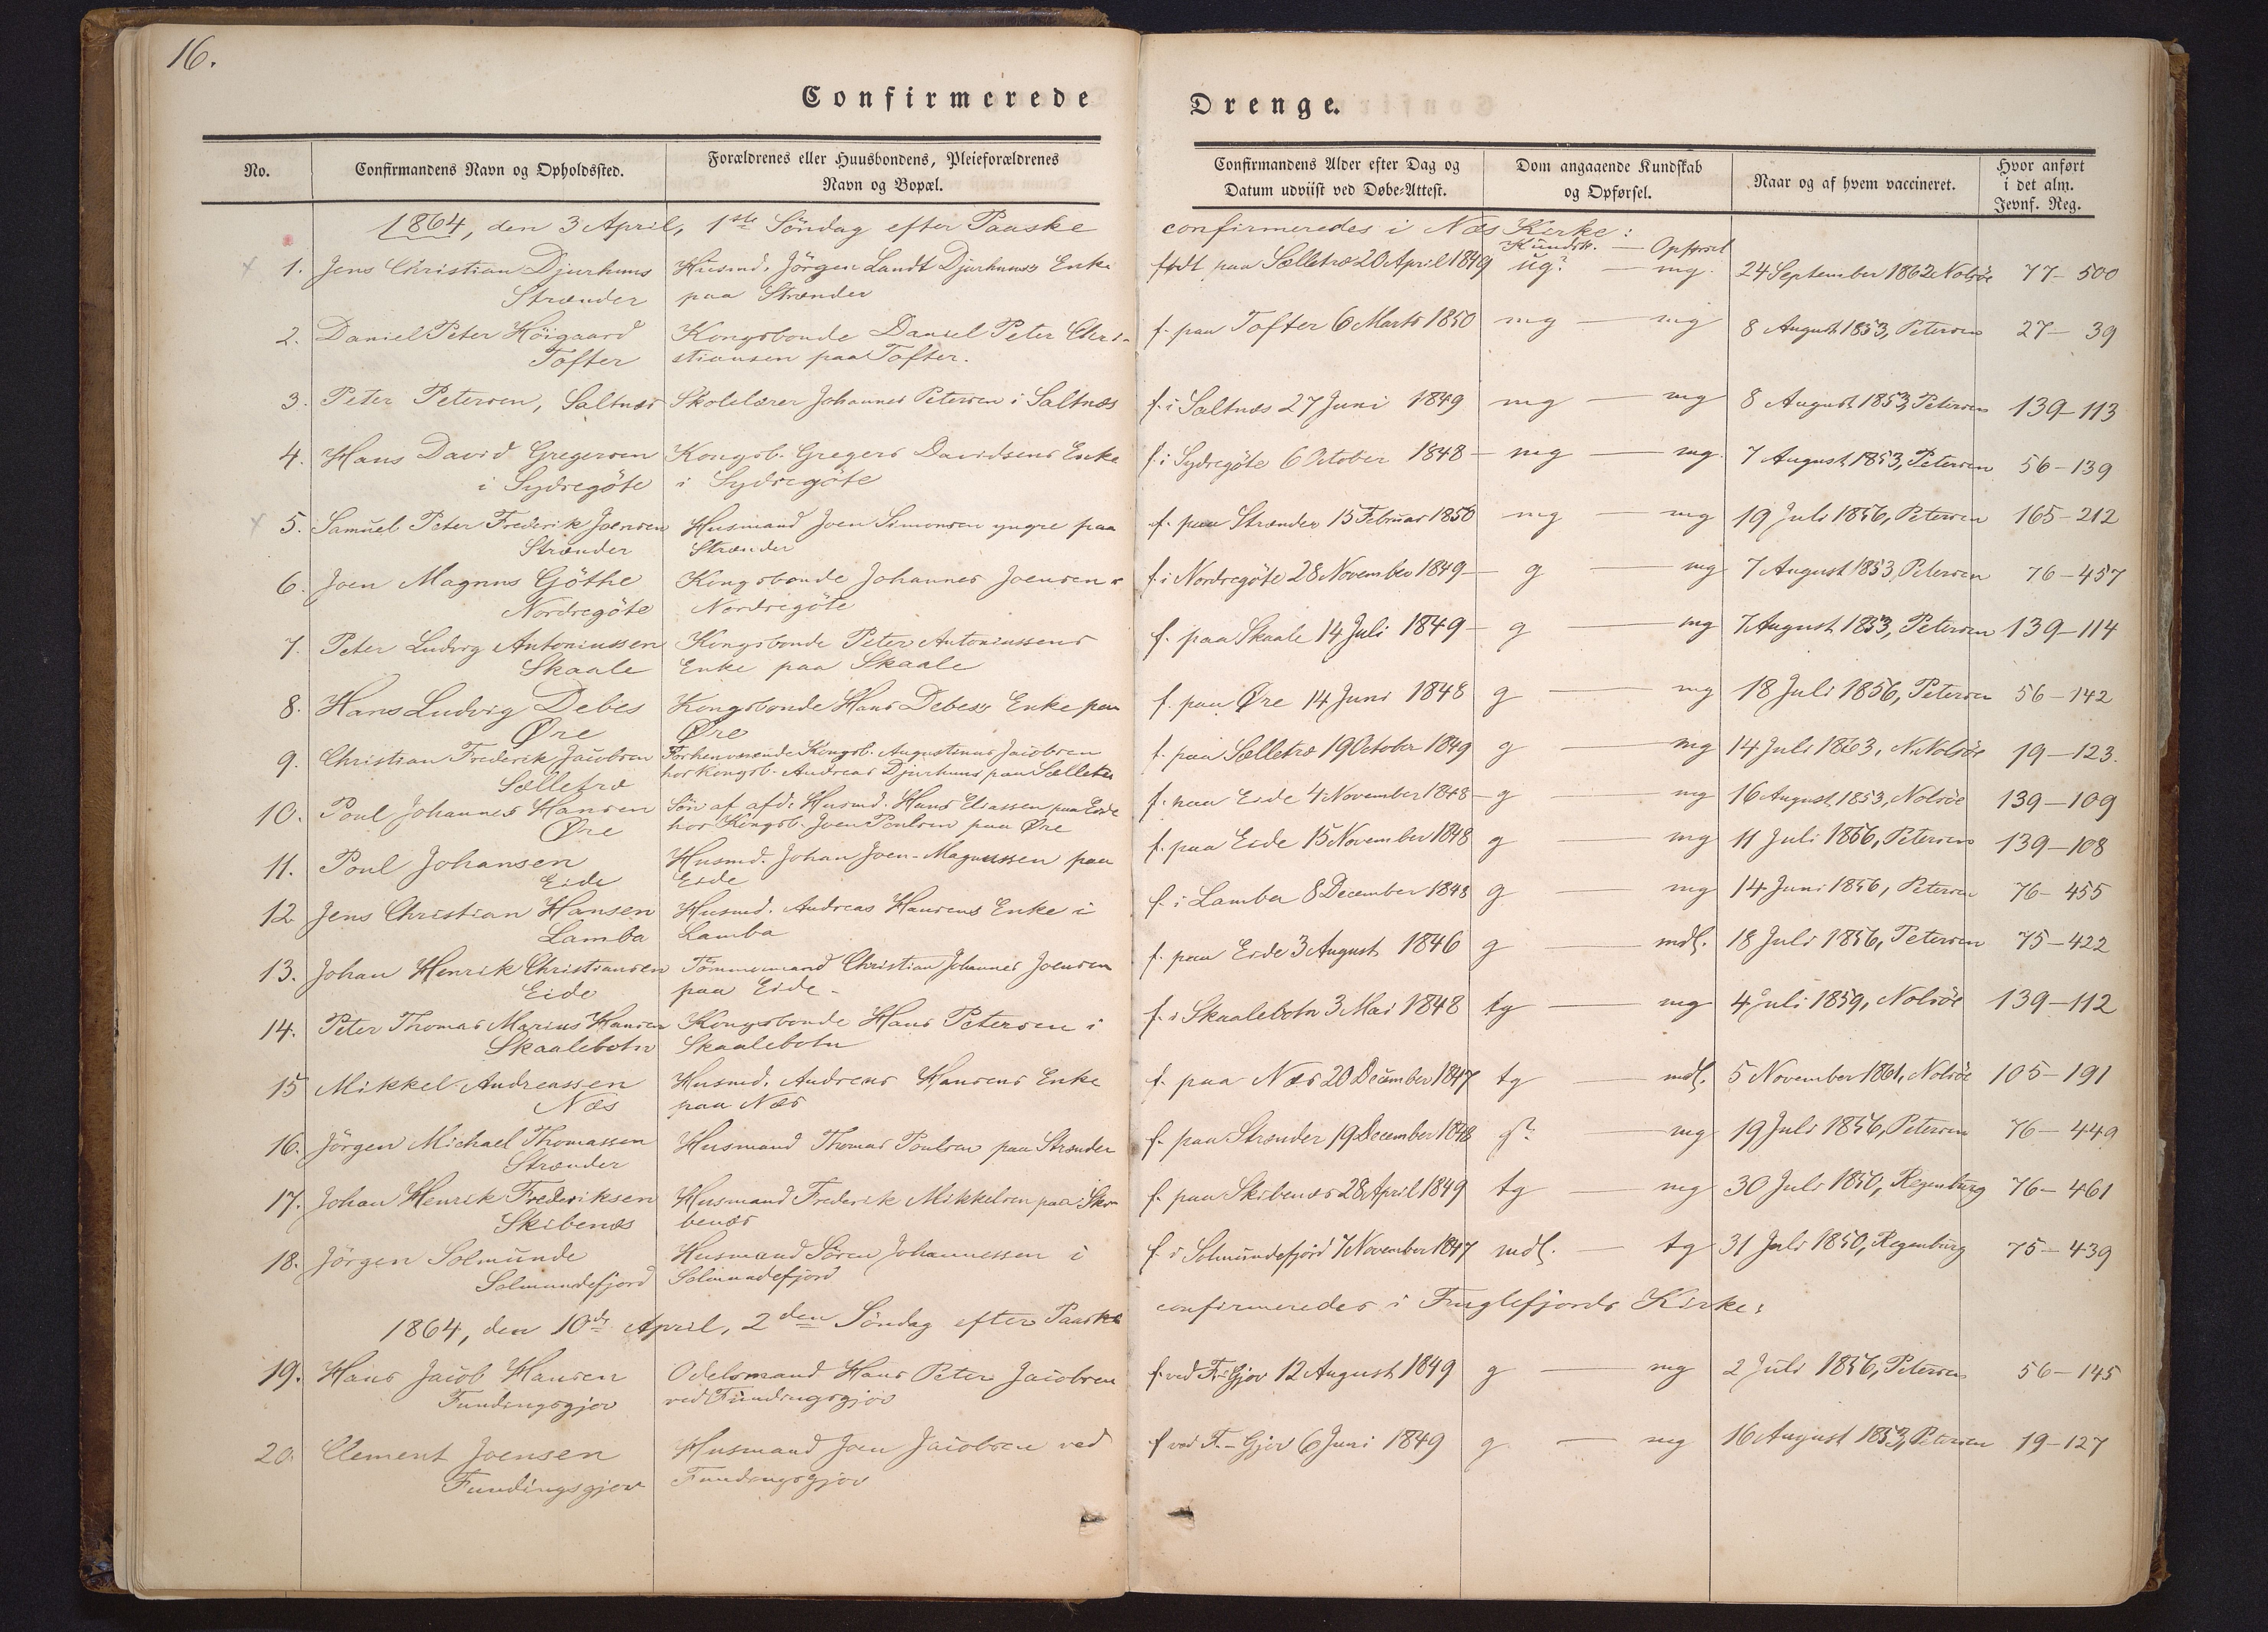 16.
Confirmerede Drenge.
No. | Confirmandens Navn og Opholdssted. | Forældrenes eller Huusbondens, Pleieforældrenes Navn og Bopæl. | Confirmandens Alder efter Dag og Datum udviist ved Døbe-Attest. | Dom angaaende Kundskab og Opførsel. | Naar og af hvem vaccineret. | Hvor anført i det alm. Jevnf. Reg.
1864, den 3 April, 1ste Söndag efter Paaske confirmeredes i Næs Kirke:
Kundsk. — Opförsel
1. Jens Christian Djurhuus Husmd. Jörgen Landt Djurhuus's Enke født paa Selletræ 20 April 1849 ug? — mg. 24 September 1862 Nolsöe 77-500
Strænder paa Strænder
2. Daniel Peter Höigaard Kongsbonde Daniel Peter Chri- f. paa Tofter 6 Marts 1850 mg — mg 8 August 1853, Petersen 27-39
Tofter stiansen paa Tofter.
3. Peter Petersen, Saltnæs Skolelærer Johannes Petersen i Saltnæs f. i Saltnæs 27 Juni 1849 mg — mg 8 August 1853, Petersen 139-113
4. Hans David Gregersen Kongsb. Gregers Davidsens Enke f. i Sydregöte 6 October 1848 - mg — mg. 7 August 1853, Petersen 56-139
i Sydregöte i Sydregöte
5. Samuel Peter Frederik Joensen Husmand Joen Simonsen yngre paa f. paa Strænder 15 Februar 1850 mg — mg 19 Juli 1856, Petersen 165-212
Strænder Strænder
6. Joen Magnus Göthe Kongsbonde Johannes Joensen i f. i Nordregöte 28 November 1849 - g — mg 7 August 1853, Petersen 76-457
Nordregöte Nordregöte
7. Peter Ludvig Antoniussen Kongsbonde Peter Antoniussens f. paa Skaale 14 Juli 1849 - g — mg 7 August 1853, Petersen 139-114
Skaale Enke paa Skaale
8. Hans Ludvig Debes Kongsbonde Hans Debess Enke paa f. paa Øre 14 Juni 1848 g — mg 18 Juli 1856, Petersen 56-142
Øre Øre
9. Christian Frederik Jacobsen Forhenværende Kongsb. Augustinus Jacobsen f. paa Selletræ 19 October 1849 g — mg 14 Juli 1863, Nolsöe 19-123.
Selletræ hos Kongsb. Andreas Djurhuus paa Selletræ
10. Poul Johannes Hansen Sön af afd. Husmd. Hans Eliassen paa Eide f. paa Eide 4 November 1848 - g — mg 16 August 1853, Nolsöe 139-109
Øre hos Kongsb. Joen Poulsen paa Øre
11. Poul Johansen Husmd. Johan Joen-Magnussen paa f. paa Eide 15 November 1848 g — mg 11 Juli 1856, Petersen 139-108
Eide Eide
12. Jens Christian Hansen Husmd. Andreas Hansens Enke i f. i Lamba 8 December 1848 g — mg 14 Juni 1856, Petersen 76-455
Lamba Lamba
13. Johan Henrik Christiansen Tömmermand Christian Johannes Joensen f. paa Eide 3 August 1846 g — mdl. 18 Juli 1856, Petersen 75-422
Eide paa Eide
14. Peter Thomas Marius Hansen Kongsbonde Hans Petersen i f. i Skaalebotn 3 Mai 1848 tg — mg 4 Juli 1859, Nolsöe 139-112
Skaalebotn Skaalebotn
15 Mikkel Andreassen Husmd. Andreas Hansens Enke f. paa Næs 20 December 1847 tg — mdl. 5 November 1861, Nolsöe 105-191
Næs paa Næs
16. Jörgen Michael Thomassen Husmand Thomas Poulsen paa Strænder f. paa Strænder 19 December 1848 g? — mg 19 Juli 1856, Petersen 76-449
Strænder
17. Johan Henrik Frederiksen Husmand Frederik Mikkelsen paa Ski- f. paa Skibenæs 28 April 1849 tg — mg 30 Juli 1850, Regenburg 76-461
Skibenæs benæs
18. Jörgen Solmunde Husmand Sören Johannessen i f. i Solmundefjord 7 November 1847 mdl. — tg 31 Juli 1850, Regenburg 75-439
Solmundefjord Solmundefjord
1864, den 10de April, 2den Söndag efter Paaske confirmeredes i Fuglefjords Kirke:
19. Hans Jacob Hansen Odelsmand Hans Peter Jacobsen f. ved F.-Gjov 12 August 1849 g — mg 2 Juli 1856, Petersen 56-145
Fundingsgjov ved Fundingsgjov
20. Clement Joensen Husmand Joen Jacobsen ved f. ved F.-Gjov 6 Juni 1849 g. — mg 16 August 1853, Petersen 19-127
Fundingsgjov Fundingsgjov